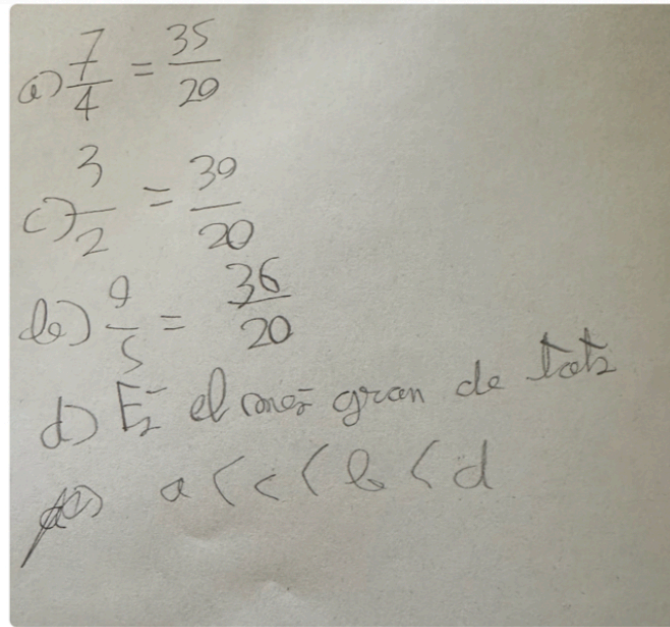 a) 7/4 = 35/20
c) 3/2 = 30/20
b) 9/5 = 36/20
d) És el més gran de tots
a < c < b < d